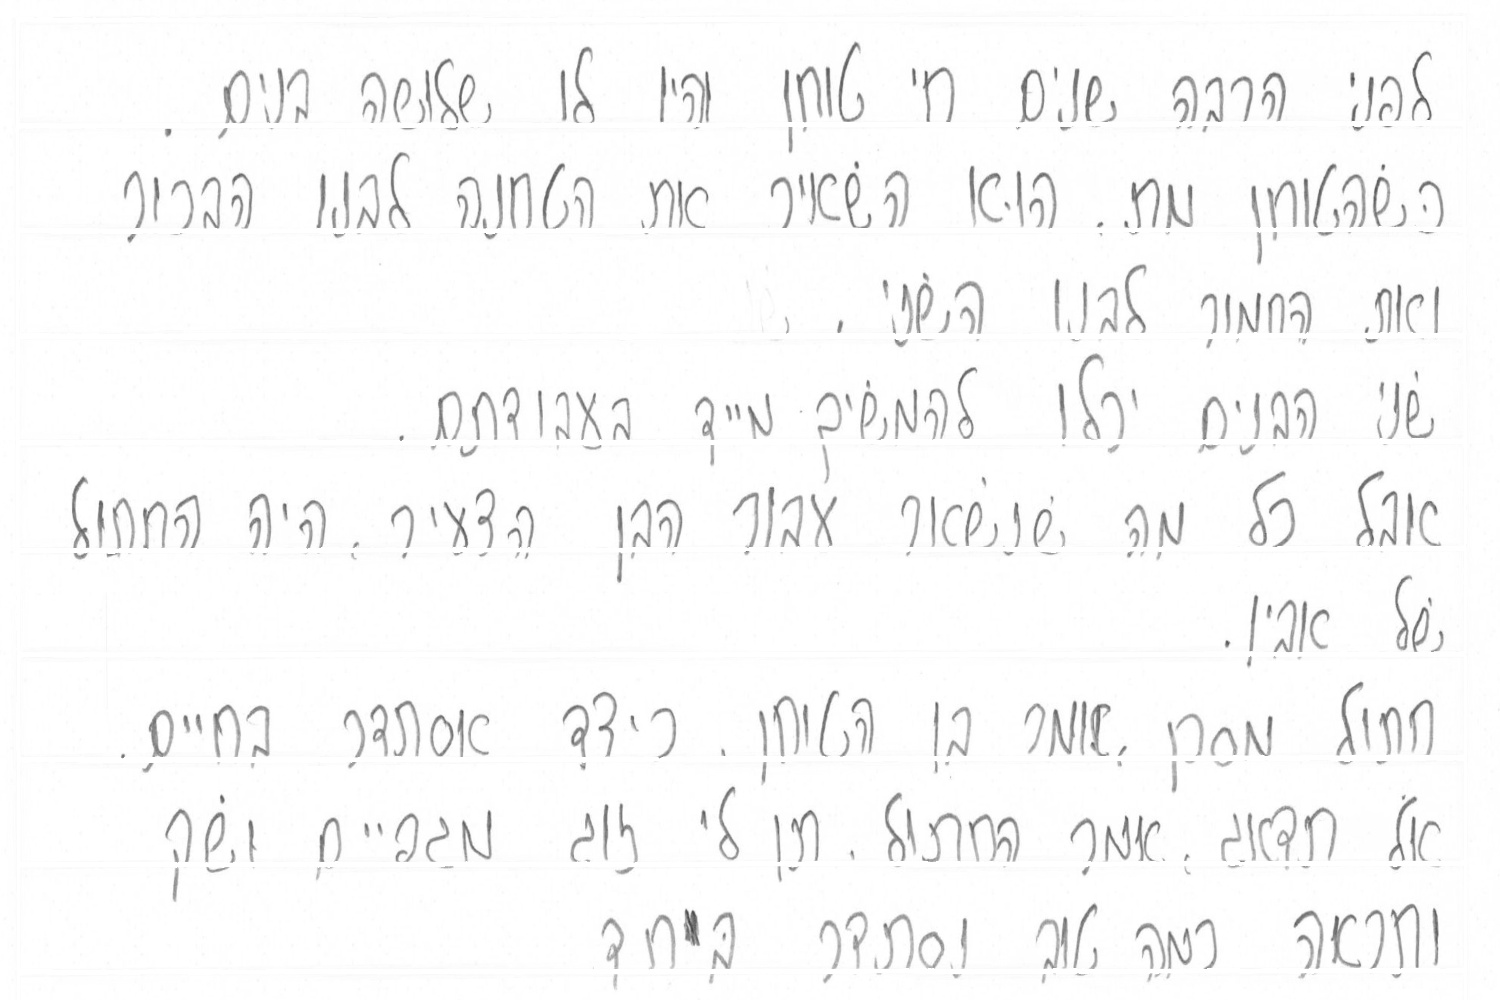 לפני הרבה שנים חי טוחן והיו לו שלושה בנים .
כשהטוחן מת . הוא השאיר את הטחנה לבנו הבכור
ואת החמור לבנו השני .
שני הבנים יכלו להמשיך מייד בעבודתם .
אבל כל מה שנשאר עבור הבן הצעיר . היה החתול
של אביו .
חתול מסכן , אומר בן הטוחן . כיצד אסתדר בחיים .
אל תדאג , אומר החתול . תן לי זוג מגפיים ושק
ותראה כמה טוב נסתדר ביחד